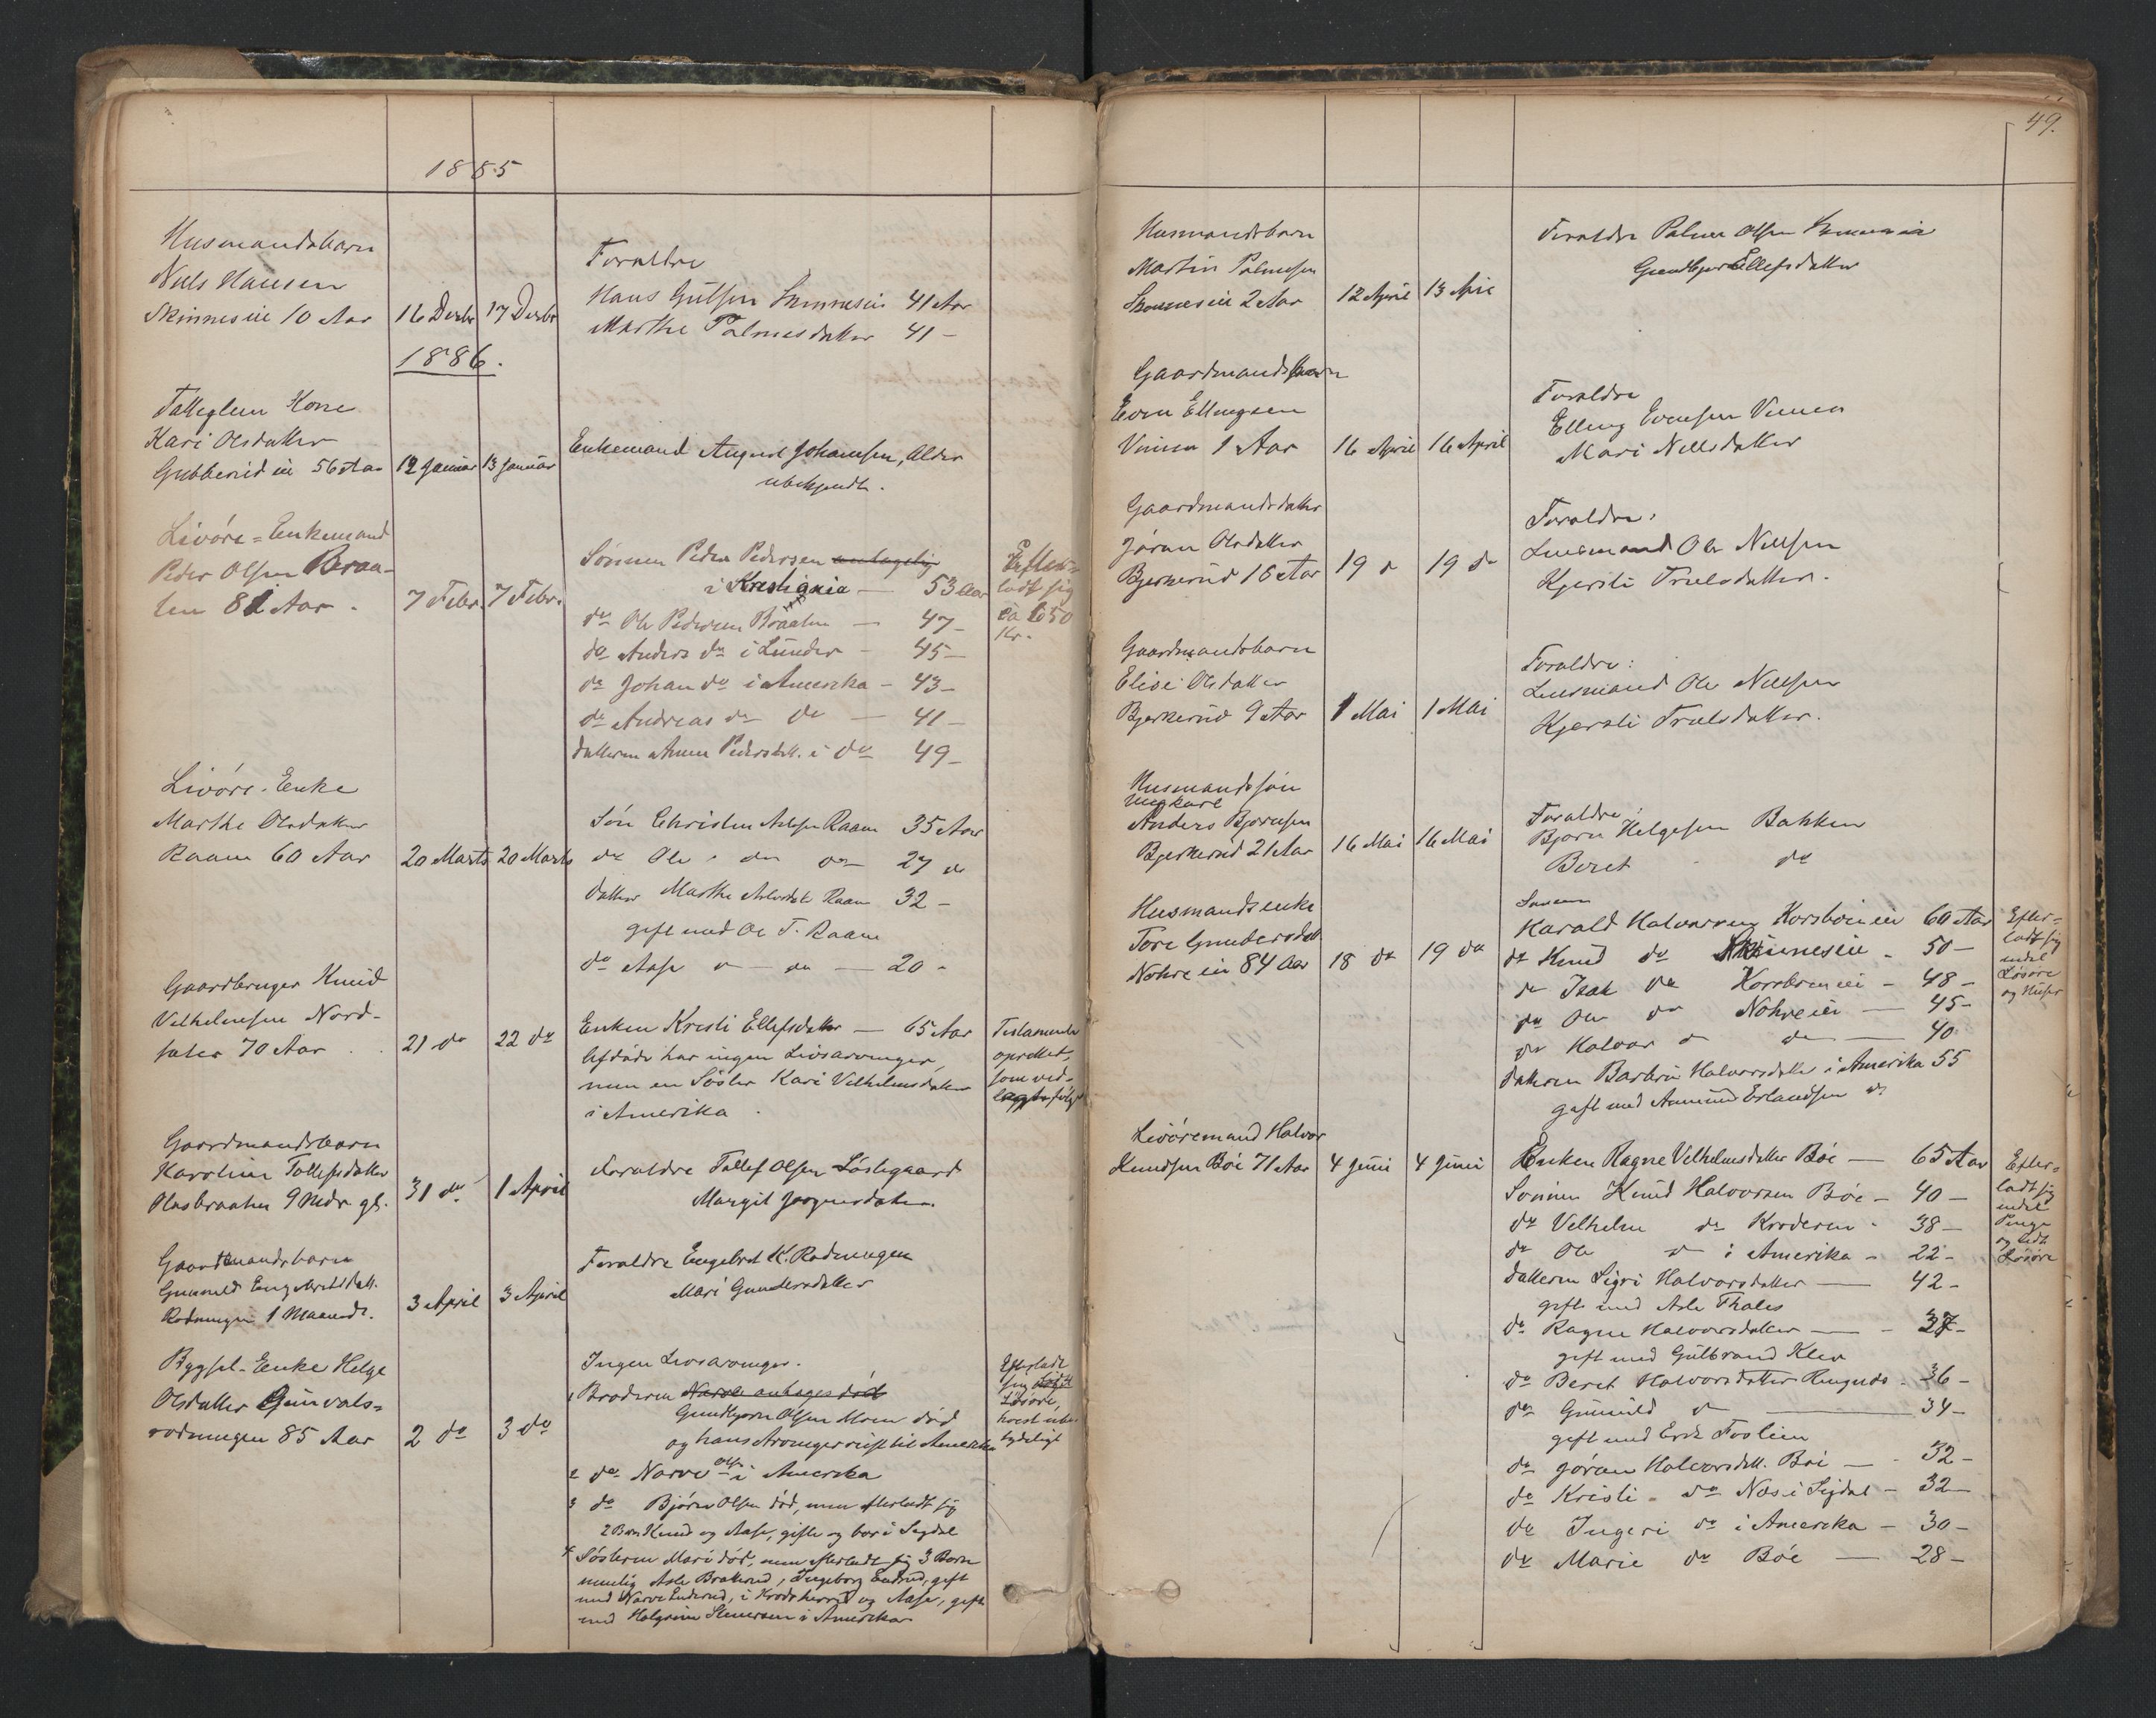 1885
Husmandsbarn
Niels Hansen
Skinnes eie 10 Aar
16 Decbr
17 Decbr
Forældre
Hans Gulsen Skinneseie 41 Aar
Marthe Palmesdatter 41 —
1886.
Kone
Kari Olsdatter
Gubberud eie 56 Aar
12 Januar
13 Januar
Enkemand August Johansen, Alder
ubekjendt.
Livöre = Enkemand
Peder Olsen Braa-
ten 81 Aar.
7 Febr.
7 Febr.
Sönnen Peder Pedersen antagelig
i Kristiania — 53 Aar
do Ole Pedersen Braaten — 47 —
do Anders do i Lunder — 45 —
do Johan do i Amerika — 43 —
do Andreas do do — 41 —
datteren Anne Pedersdatt. i do 49 —
Efter-
ladt sig
ca 650
Kr.
Livöre-Enke
Marthe Olsdatter
Raaen 60 Aar
20 Marts
20 Marts
Sön Christen Aslesen Raaen 35 Aar
do Ole do do 27 do
datter Marthe Aslesdatt. Raaen 32 —
gift med Ole T. Raaen
do Aase do — do — 20 —
Gaardbruger Knud
Velhelmsen Nord-
sater 70 Aar
21 do
22 do
Enken Kristi Ellefsdatter — 65 Aar
Afdöde har ingen Livsarvinger,
men en Söster Kari Velhelmsdatter
i Amerika.
Testamente
oprettet,
som ved-
lagt følger
Gaardmandsbarn
Karoline Tollefsdatter
Olasbraaten 9 Mdr. gl.
31 do
1 April
Forældre Tollef Olsen Löslegaard
Margit Jörgensdatter
Gaardmandsbarn
Gunnild Engebretsdatt.
Rodningen 1 Maaned.
3 April
3 April
Forældre Engebret K. Rodningen
Mari Gundersdatter
Bygsel-Enke Helge
Olsdatter Gunvals-
rodningen 85 Aar
2 do
3 do
Ingen Livsarvinger.
1 Broderen Narve antages död
Gundbjørn Olsen Moen död
og hans Arvinger reist til Amerika
2 do Narve Olsen i Amerika
3 do Bjørn Olsen död, men efterladt sig
2 Børn Knud og Aase, gifte og bor i Sigdal
4 Sösteren Mari död, men efterladt sig 3 Børn
nemlig Asle Brakerud, Ingeborg Enderud, gift
med Narve Enderud, i Krödsherred og Aase, gift
med Halgrim Stenersen i Amerika
Efterladt
sig lidt
Lösöre,
hvest ube-
tydeligt
49.
Husmandsbarn
Martin Palmesen
Skinneseie 2 Aar
12 April
13 April
Forældre Palme Olsen Skinneseie
Gundbjør Ellefsdatter
Gaardmandsbarn
Even Ellingsen
Vinnen 1 Aar
16 April
16 April
Forældre
Elling Evensen Vinnen
Mari Nilsdatter
Gaardmandsdatter
Jöran Olsdatter
Bjerkerud 16 Aar
19 do
19 do
Forældre:
Lensmand Ole Nilssen
Kjersti Truelsdatter.
Gaardmandsbarn
Elise Olsdatter
Bjerkerud 9 Aar
1 Mai
1 Mai
Forældre:
Lensmand Ole Nilssen
Kjersti Truelsdatter.
Husmandssön
ungkarl
Anders Bjørnsen
Bjerkerud 21 Aar
16 Mai
16 Mai
Forældre
Bjørn Helgesen Bakken
Beret do
Husmandsenke
Tore Gundersdatt.
Nohre eie 84 Aar
18 do
19 do
Sönnen
Harald Halvorsen Korsböneie 60 Aar
do Knud do Skinneseie 50 —
do Isak do Korsböneie — 48 —
do Ole do Nohreeie — 45 —
do Halvor do do — 40
datteren Barbro Halvorsdatter i Amerika 55
gift med Amund Erlandsen do
Efter-
ladt sig
endel
Lösöre
og Huser
Livöremand Halvor
Knudsen Böe 71 Aar
4 Juni
4 Juni
Enken Ragne Velhelmsdatter Böe — 65 Aar
Sönnen Knud Halvorsen Böe — 40 —
do Velhelm do Kröderen — 38 —
do Ole do i Amerika — 22 —
datteren Sigri Halvorsdatter — 42 —
gift med Asle Tholes
do Ragne Halvorsdatter — 37 —
gift med Gulbrand Klev
do Beret Halvorsdatter Ringnes — 36 —
do Gunnild do — 34 —
gift med Erik Foslien
do Jöran Halvorsdatt. Böe — 32 —
do Kristi do Næs i Sigdal — 32 —
do Ingeri do i Amerika — 30 —
do Marie do Böe — 28 —
Efter-
ladt sig
endel
Penge
og lidt
Lösöre